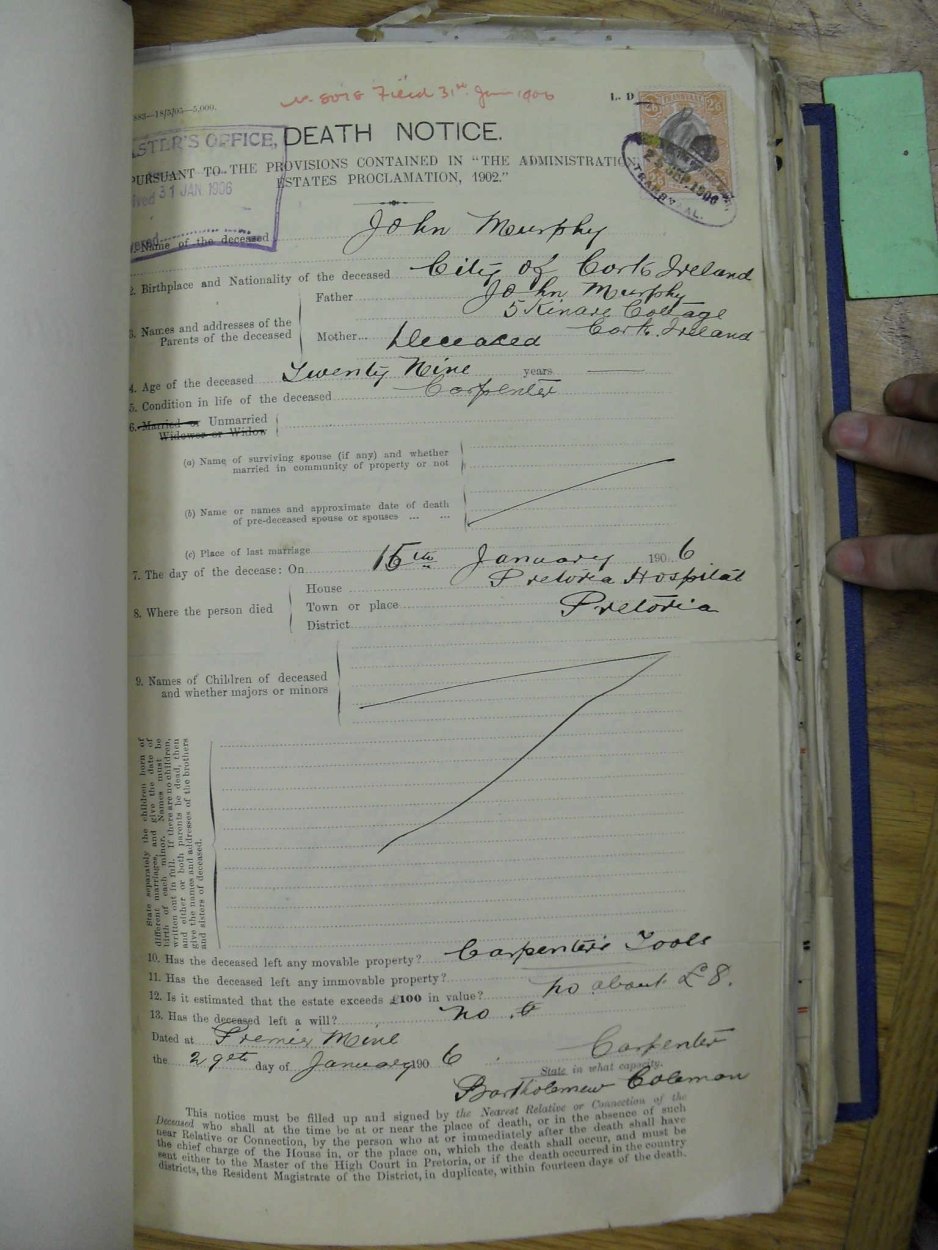 883—18/5/05—5,000.
8018 Filed 31st Jan 1906
L. D
TRANSVAAL
MASTER'S OFFICE,
31 JAN. 1906
DEATH NOTICE.
PURSUANT TO THE PROVISIONS CONTAINED IN "THE ADMINISTRATION
ESTATES PROCLAMATION, 1902."
JAN. 1906
TRANSVAAL.
Name of the deceased John Murphy
2. Birthplace and Nationality of the deceased City of Cork Ireland
3. Names and addresses of the Parents of the deceased
Father John Murphy
5 Kinare Cottage
Cork. Ireland
Mother... Deceased
4. Age of the deceased Twenty Nine years
5. Condition in life of the deceased Carpenter
6. Married or Unmarried
Widower or Widow
(a) Name of surviving spouse (if any) and whether
married in community of property or not
(b) Name or names and approximate date of death
of pre-deceased spouse or spouses ... ...
(c) Place of last marriage
7. The day of the decease: On 15th January 1906
8. Where the person died
House Pretoria Hospital
Town or place Pretoria
District
9. Names of Children of deceased
and whether majors or minors
State separately the children born of
different marriages, and give the date of
birth of each minor. Names must be
written out in full. If there are no children,
and either or both parents be dead, then
give the names and addresses of the brothers
and sisters of deceased.
10. Has the deceased left any movable property? Carpenter's Tools
11. Has the deceased left any immovable property?
12. Is it estimated that the estate exceeds £100 in value? no about £8.
13. Has the deceased left a will? no
Dated at Premier Mine
the 29th day of January 1906
Carpenter
State in what capacity.
Bartholomew Coleman
This notice must be filled up and signed by the Nearest Relative or Connection of the
Deceased who shall at the time be at or near the place of death, or in the absence of such
near Relative or Connection, by the person who at or immediately after the death shall have
the chief charge of the House in, or the place on, which the death shall occur, and must be
sent either to the Master of the High Court in Pretoria, or if the death occurred in the country
districts, the Resident Magistrate of the District, in duplicate, within fourteen days of the death.